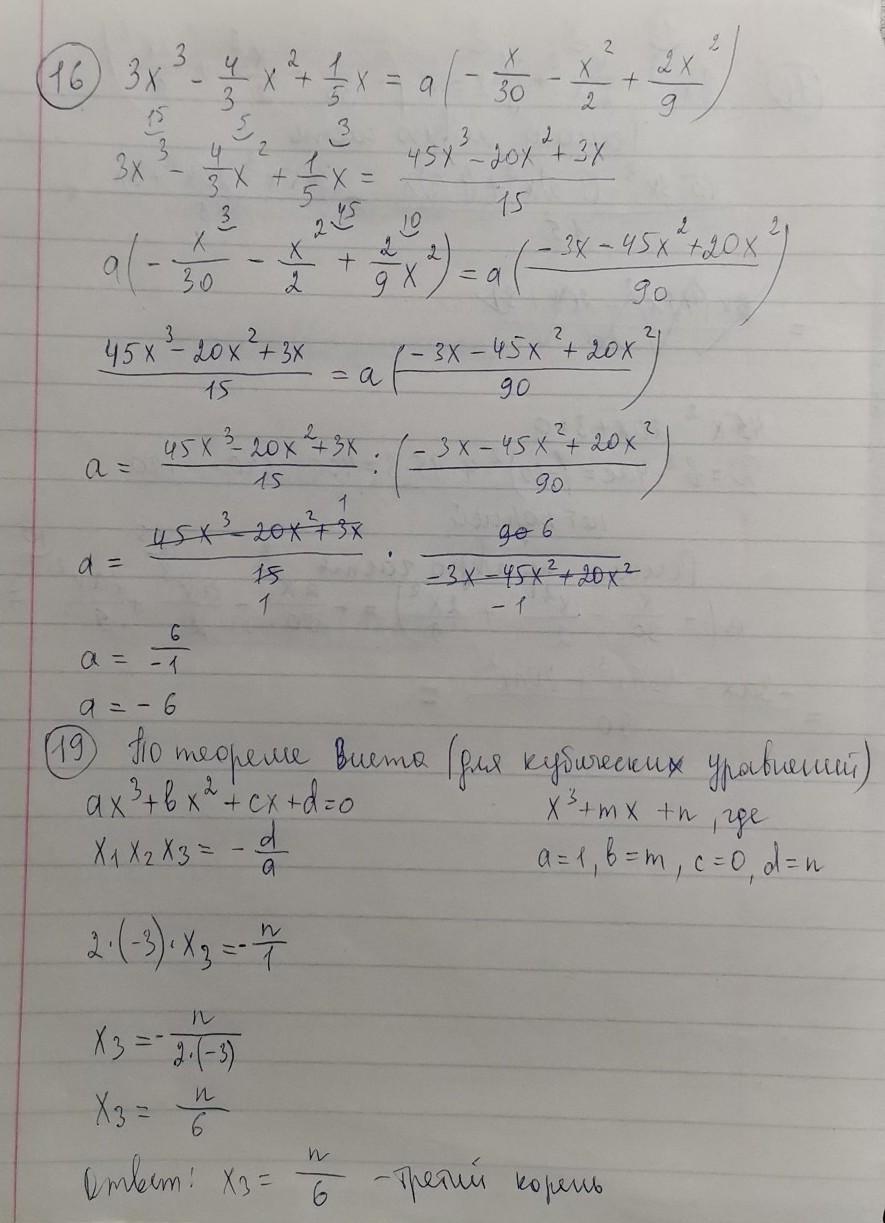 16 3x³ - 4/3 x² + 1/5 x = a(- x/30 - x²/2 + 2x²/9)
15 5 3
3x³ - 4/3 x² + 1/5 x = (45x³ - 20x² + 3x)/15
3 45 10
a(- x/30 - x²/2 + 2/9 x²) = a((-3x - 45x² + 20x²)/90)
(45x³ - 20x² + 3x)/15 = a((-3x - 45x² + 20x²)/90)
a = (45x³ - 20x² + 3x)/15 : ((-3x - 45x² + 20x²)/90)
1
a = (45x³ - 20x² + 3x)/15 · 90 6/(-3x - 45x² + 20x²)
1 -1
a = 6/-1
a = - 6
19 По теореме Виета (для кубических уравнений)
ax³ + bx² + cx + d = 0 x³ + mx + n, где
x₁ x₂ x₃ = - d/a a = 1, b = m, c = 0, d = n
2·(-3)·x₃ = - n/1
x₃ = - n/2·(-3)
x₃ = n/6
Ответ: x₃ = n/6 - третий корень